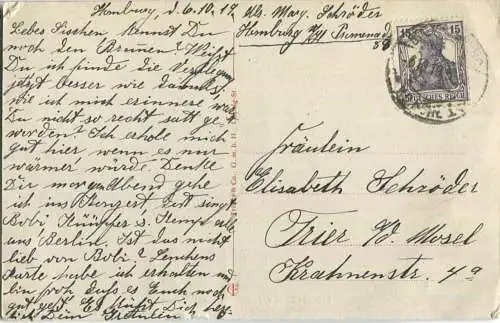 Homburg, d. 6.10.19.
Liebes Lieschen, kennst Du
noch den Brunnen? Weißt
Du ich finde die Verpflegung
jetzt besser wie damals,
wie ich mich erinnere wa
Du nicht so recht satt ge
worden? Ich erhole mich
gut hier wenn es nur
wärmer würde. Denke
Dir morgen Abend gehe
ich ins Konzert. Dort singt
Bobi
aus Berlin. Ist das nicht
lieb von Bobi. Lenchens
Karte habe ich erhalten und
bin froh dass es Euch noch
gut geht. Es küßt Dich herz-
lich Dein
Abs. Marg. Schröder
Homburg Promenade
15
DEUTSCHES REICH
Fräulein
Elisabeth Schröder
Trier a/d. Mosel
Krahnenstr. 4a